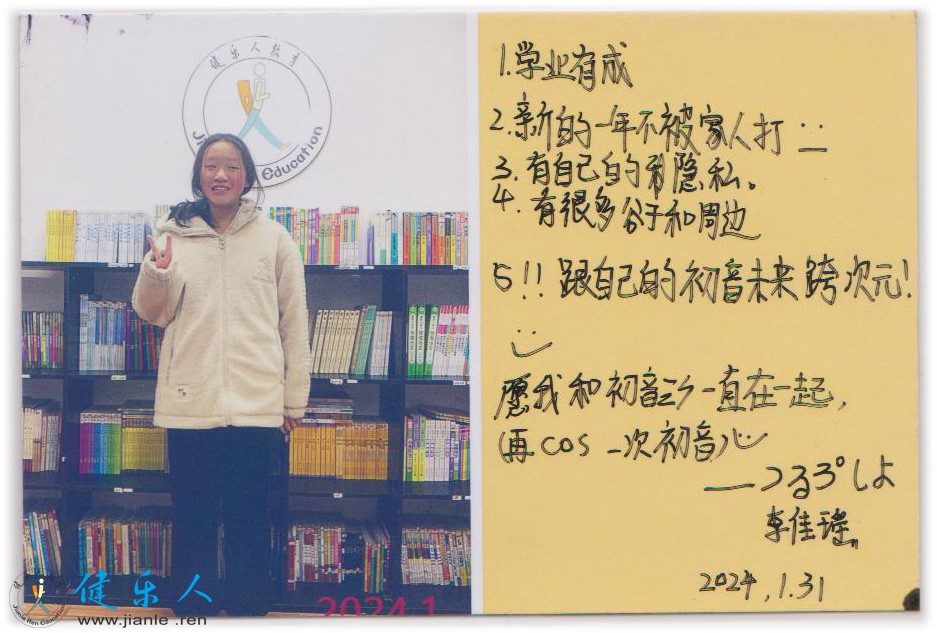 健乐人教育
Education
1.学业有成
2.新的一年不被家人打
3.有自己的隐私。
4.有很多谷子和周边
5!!跟自己的初音未来跨次元!
愿我和初音一直在一起,
(再cos一次初音)
李佳瑶
2024,1.31
2024.1
健乐人
www.jianle.ren